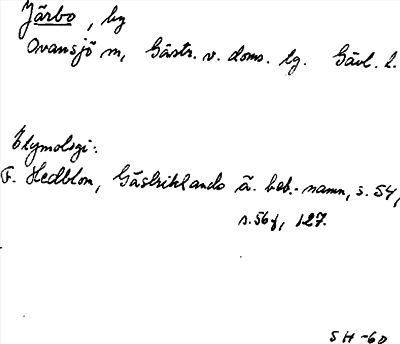 Järbo, by
Ovansjö sn, Gästr. v. doms. lg. Gävl. l.
Etymologi:
F. Hedblom, Gästriklands ä. beb.-namn, s. 54,
s. 56f, 127.
SH -60